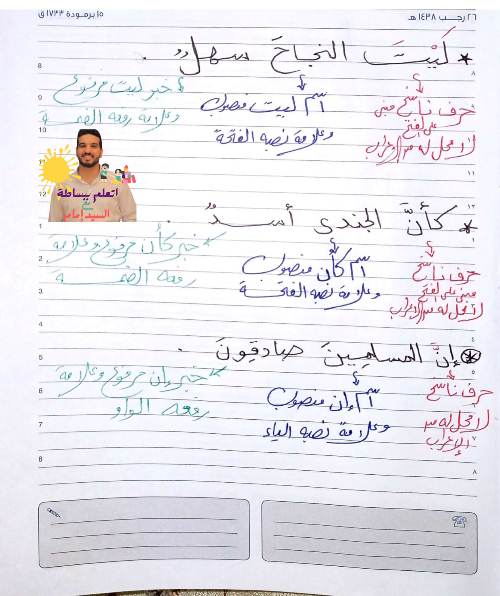 ٢٦ رجب ١٤٣٨ هـ
١٥ برمودة ١٧٣٣ ق
* لَيْتَ النجاحَ سهلٌ .
حرف ناسخ مبنى
على الفتح
لا محل له من الإعراب
اسم ليت منصوب
وعلامة نصبه الفتحة
خبر ليت مرفوع
وعلامة رفعه الضمة
اتعلم ببساطة
مع
السيد إمام
* كأنَّ الجندى أسدٌ .
حرف ناسخ
مبنى على الفتح
لا محل له من الإعراب
اسم كأن منصوب
وعلامة نصبه الفتحة
خبر كأن مرفوع وعلامة
رفعه الضمة
* إنَّ المسلمِينَ صادقونَ .
حرف ناسخ
لا محل له من
الإعراب
اسم إن منصوب
وعلامة نصبه الياء
خبر إن مرفوع وعلامة
رفعه الواو